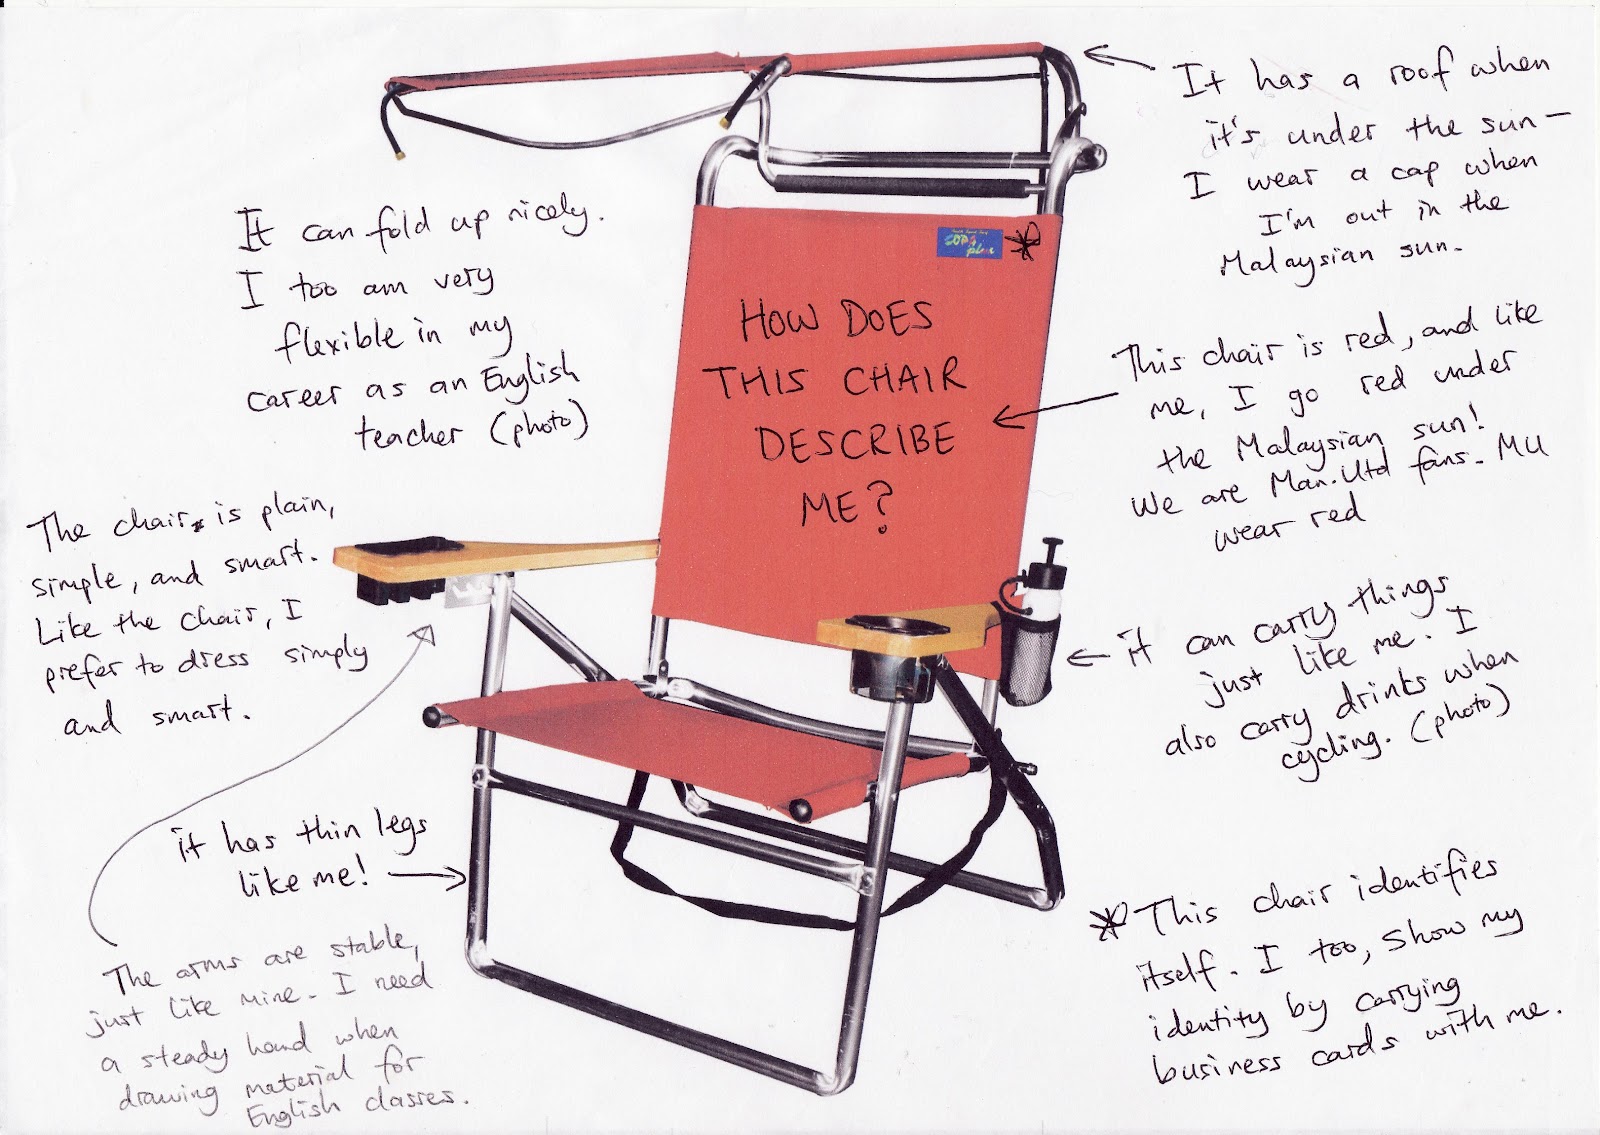 HOW DOES
THIS CHAIR
DESCRIBE
ME?
It has a roof when
it's under the sun –
I wear a cap when
I'm out in the
Malaysian sun.
It can fold up nicely.
I too am very
flexible in my
career as an English
teacher (photo)
This chair is red, and like
me, I go red under
the Malaysian sun!
We are Man.Utd fans. MU
wear red
The chair is plain,
simple, and smart.
Like the chair, I
prefer to dress simply
and smart.
it can carry things
just like me. I
also carry drinks when
cycling. (photo)
it has thin legs
like me!
* This chair identifies
itself. I too, show my
identity by carrying
business cards with me.
The arms are stable,
just like mine. I need
a steady hand when
drawing material for
English classes.